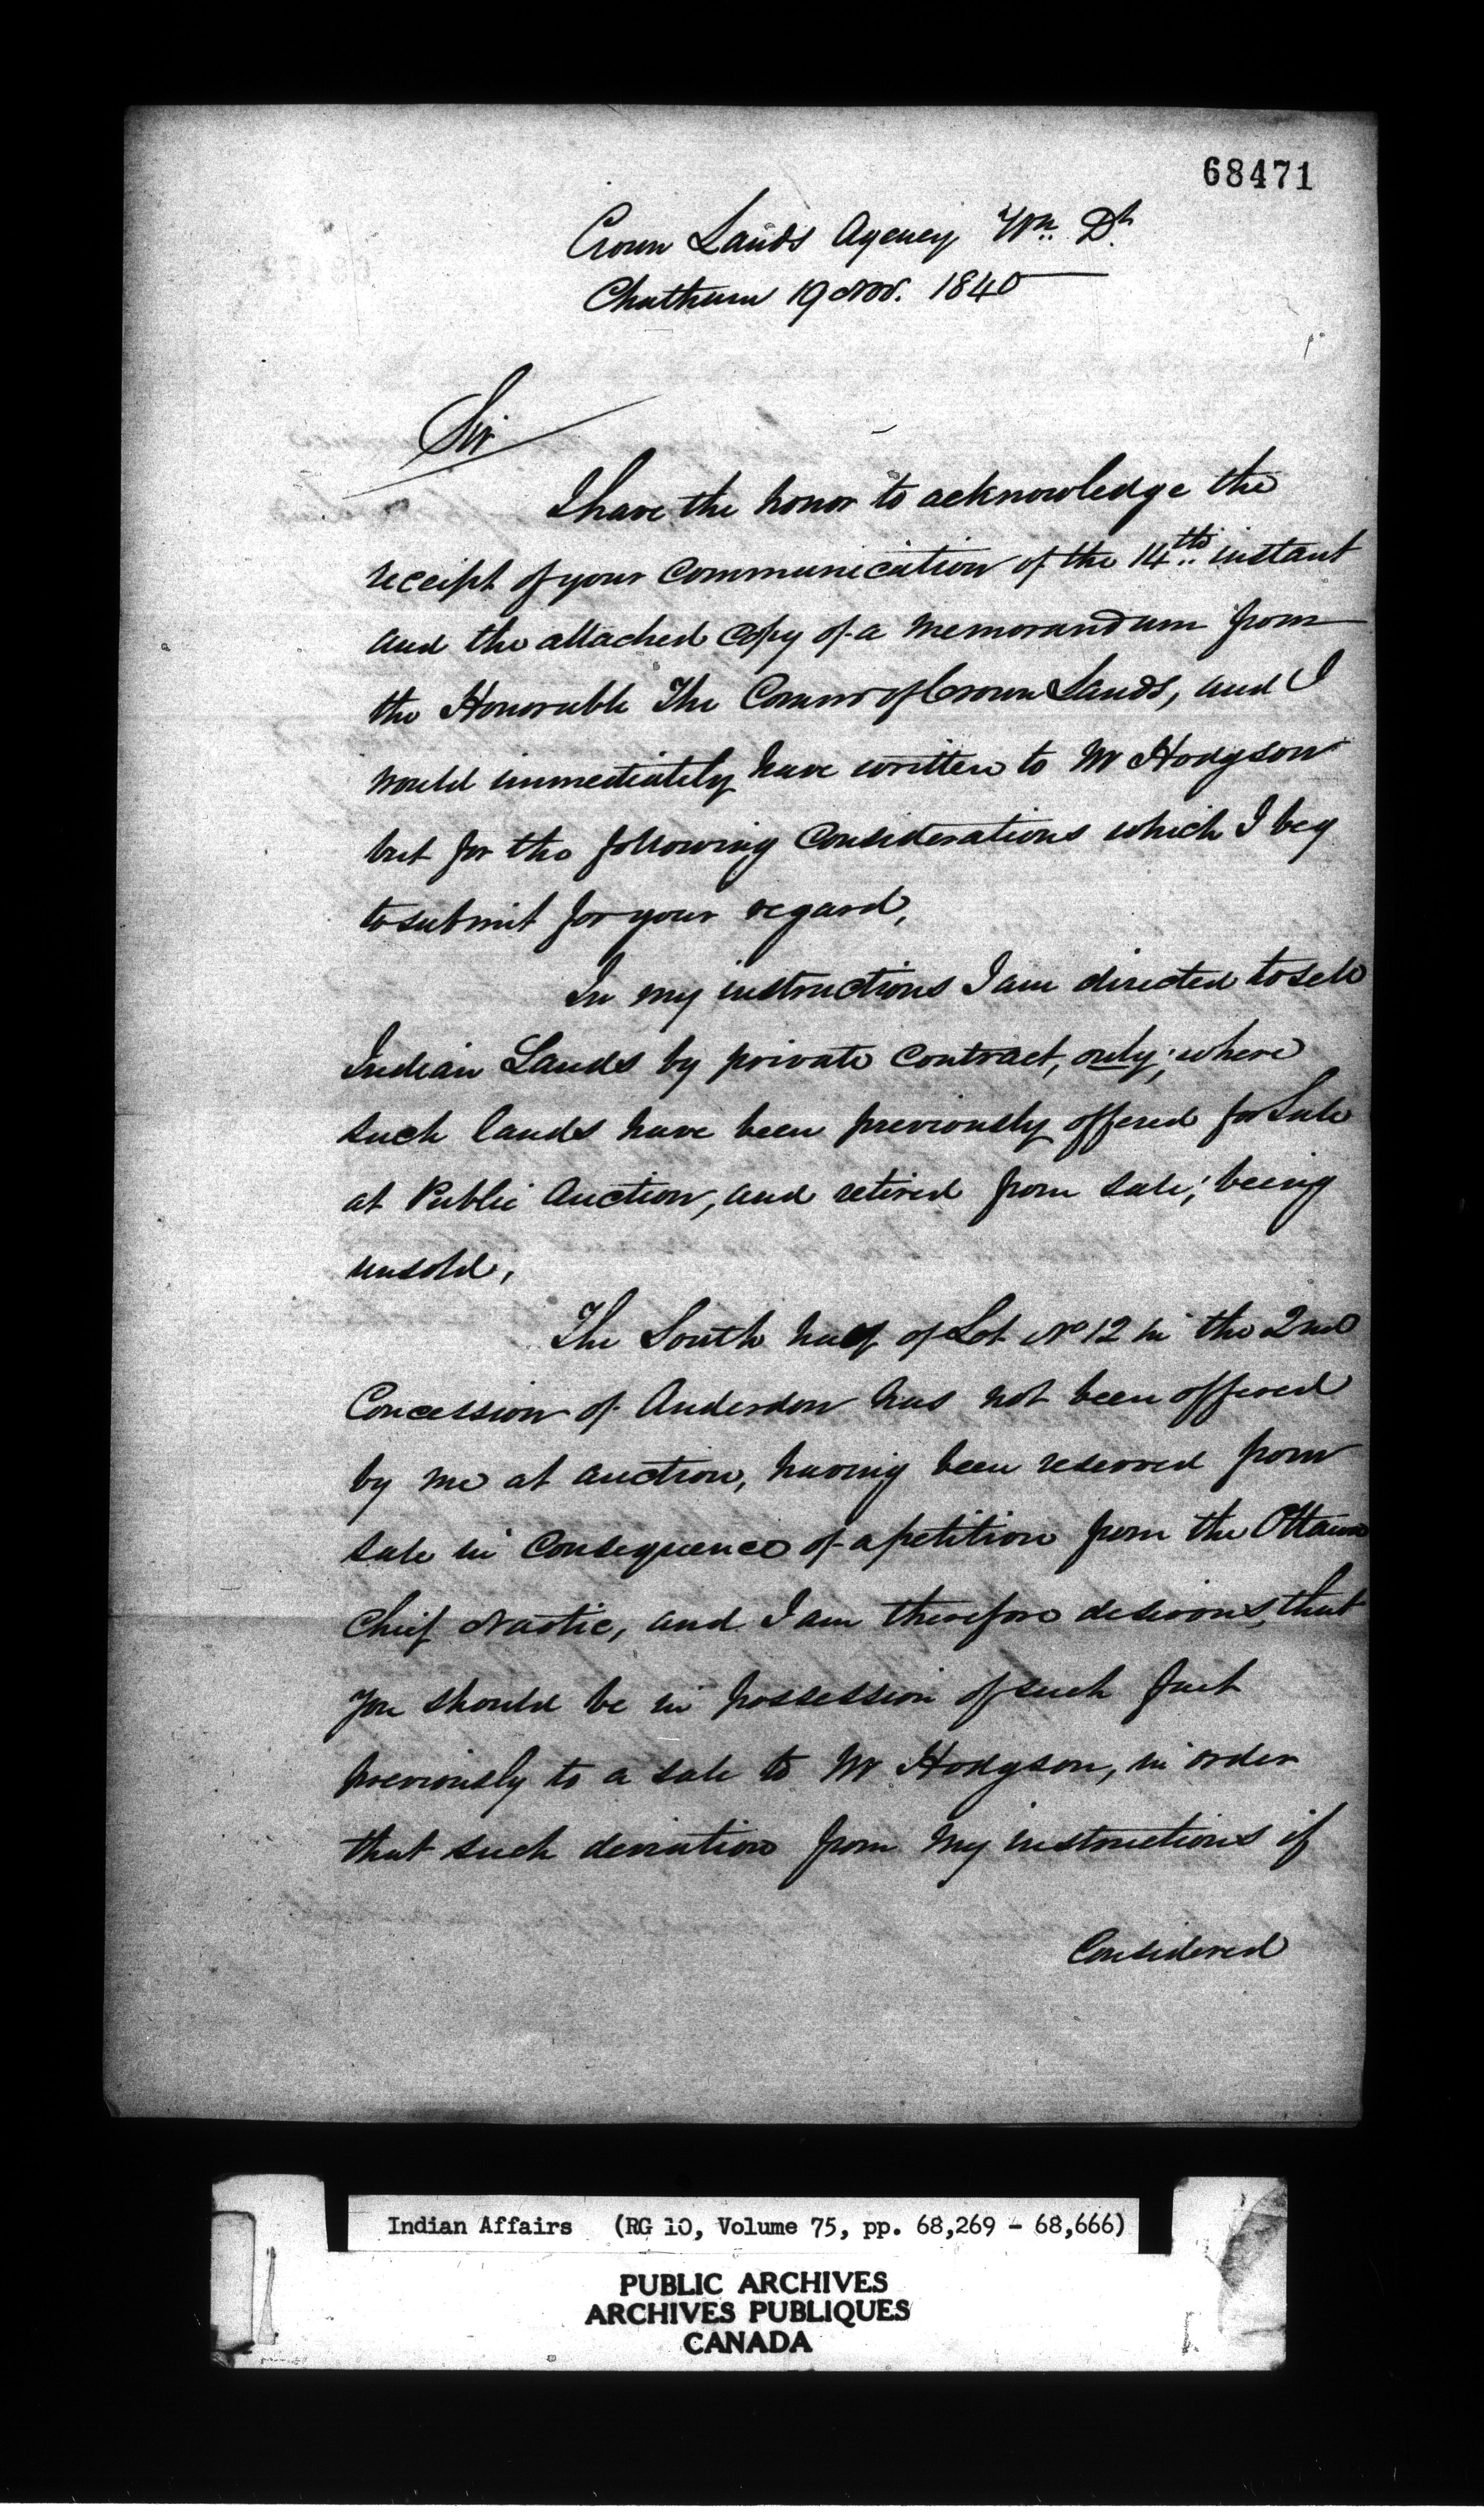 68471
Crown Lands Agency Wn. Dt.
Chatham 19 Nov. 1840
Sir
I have the honor to acknowledge the
receipt of your Communication of the 14th instant
and the attached Copy of a Memorandum from
the Honorable The Commr of Crown Lands, and I
would immediately have written to Mr Hodgson
but for the following Considerations which I beg
to submit for your regard,
In my instructions I am directed to sell
Indian Lands by private Contract, only; where
such lands have been previously offered for Sale
at Public Auction, and retired from sale; being
unsold,
The South half of Lot No 12 in the 2nd
Concession of Anderdon has not been offered
by me at auction, having been reserved from
sale in Consequence of a petition from the Ottawa
Chief and I am therefore desirous, that
you should be in possession of such fact
previously to a sale to Mr Hodgson, in order
that such deviation from my instructions if
Considered
Indian Affairs (RG 10, Volume 75, pp. 68,269 - 68,666)
PUBLIC ARCHIVES
ARCHIVES PUBLIQUES
CANADA